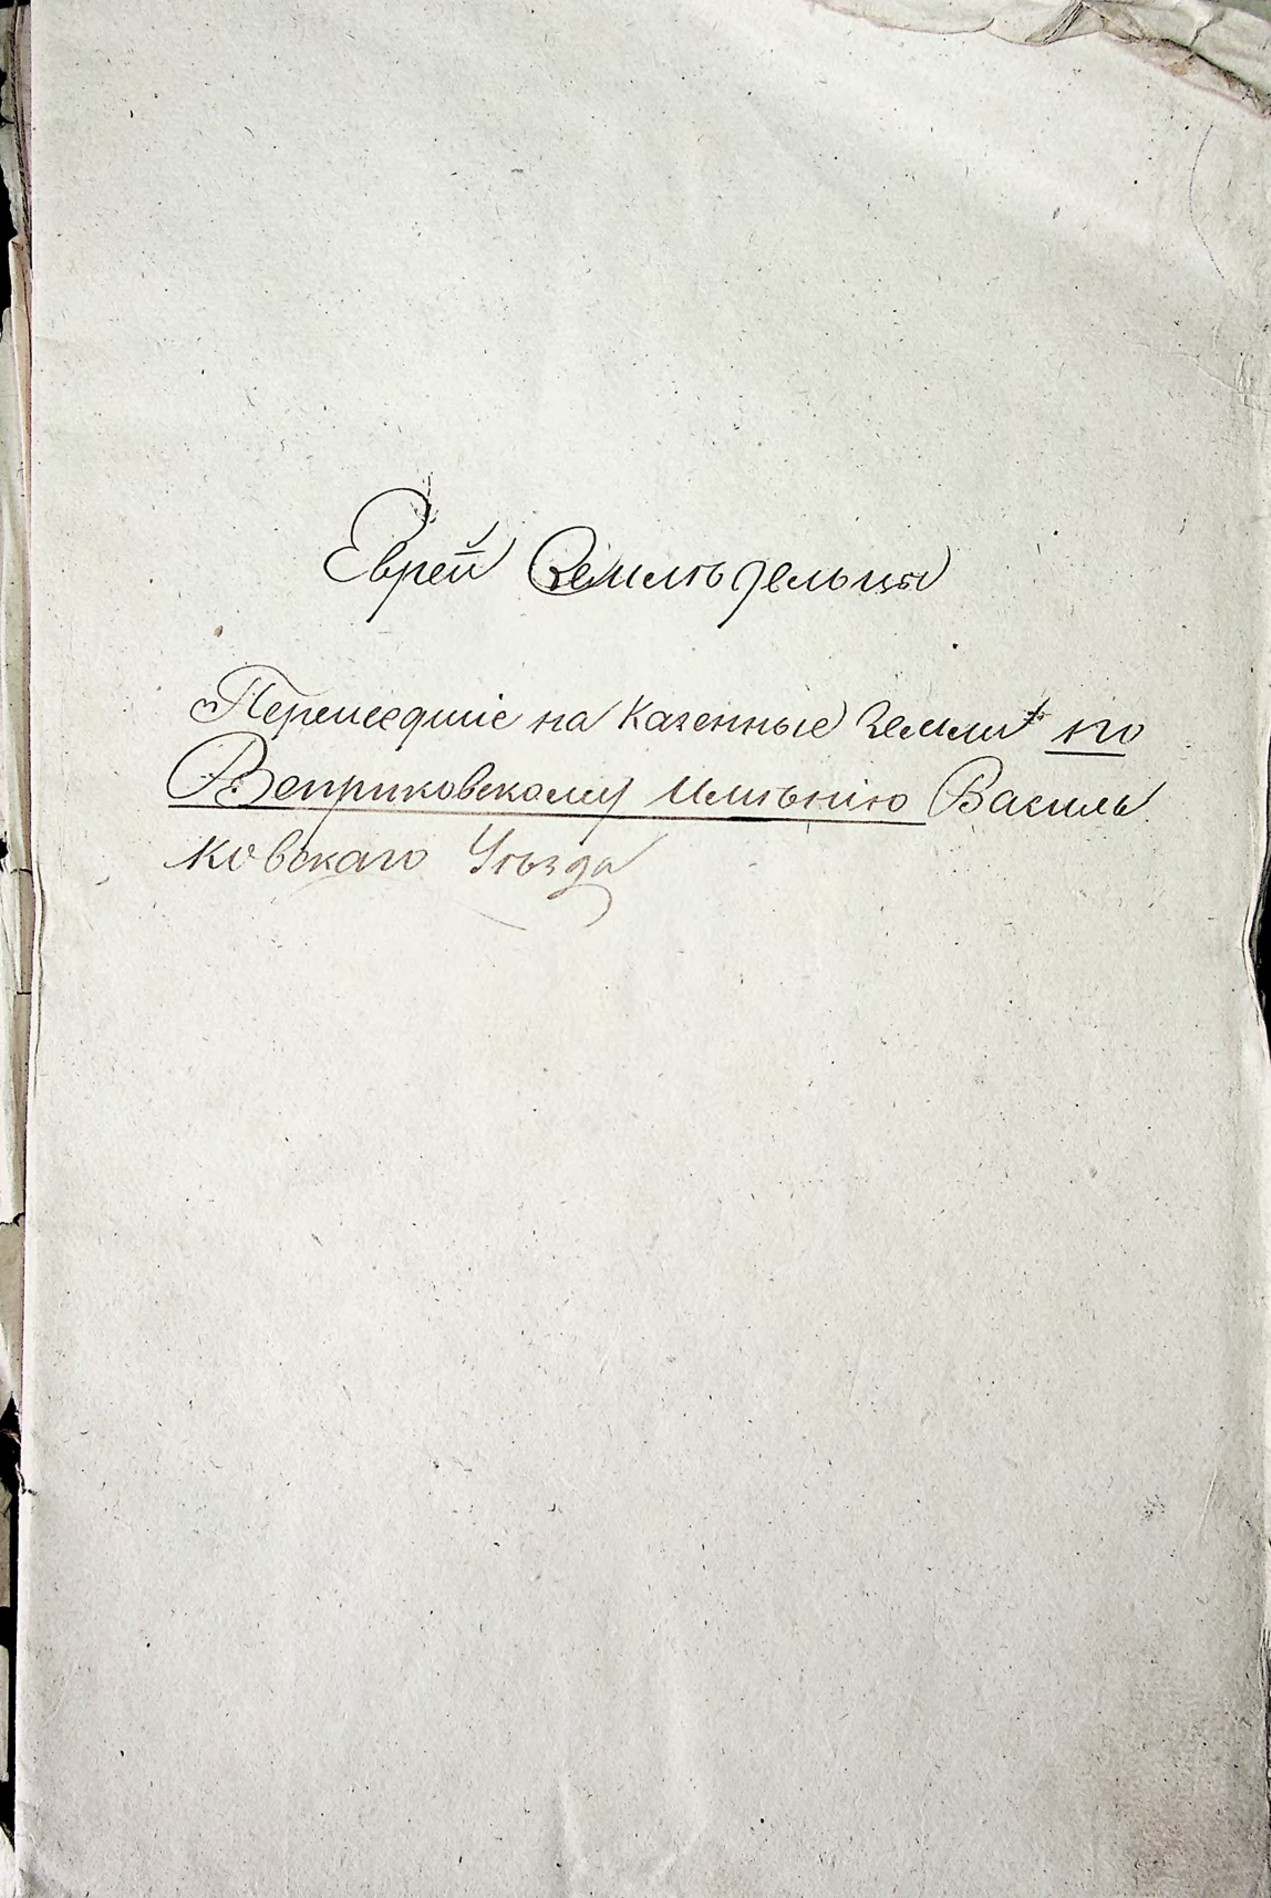 Еврей Земледѣльцы
Перешедшіе на казенные Земли по
Веприковскому Имѣнію Василь
ковскаго Уѣзда